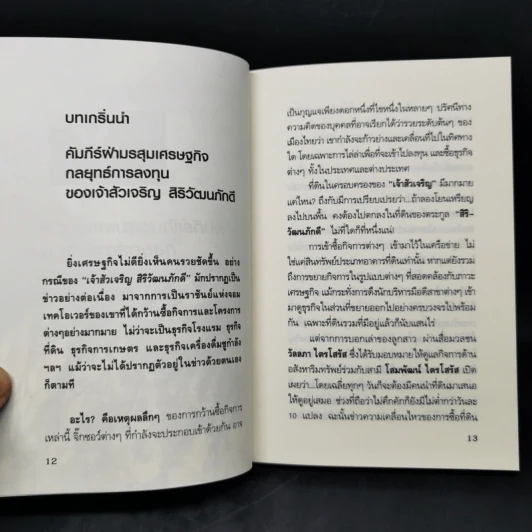 บทเกริ่นนำ
คัมภีร์ฝ่ามรสุมเศรษฐกิจ
กลยุทธ์การลงทุน
ของเจ้าสัวเจริญ สิริวัฒนภักดี
ยิ่งเศรษฐกิจไม่ดียิ่งเห็นคนรวยชัดขึ้น อย่าง
กรณีของ "เจ้าสัวเจริญ สิริวัฒนภักดี" มักปรากฏเป็น
ข่าวอย่างต่อเนื่อง มาจากการเป็นราชันย์แห่งจอม
เทคโอเวอร์ของเขาที่ได้กว้านซื้อกิจการและโครงการ
ต่างๆอย่างมากมาย ไม่ว่าจะเป็นธุรกิจโรงแรม ธุรกิจ
ที่ดิน ธุรกิจการเกษตร และธุรกิจเครื่องดื่มชูกำลัง
ฯลฯ แม้ว่าจะไม่ได้ปรากฏตัวอยู่ในข่าวด้วยตนเอง
ก็ตามที
อะไร? คือเหตุผลลึกๆ ของการกว้านซื้อกิจการ
เหล่านี้ จิ๊กซอว์ต่างๆ ที่กำลังจะประกอบเข้าด้วยกัน อาจ
12
เป็นกุญแจเพียงดอกหนึ่งที่ไขหนึ่งในหลายๆ ปริศนีทาง
ความคิดของบุคคลที่อาจเรียกได้ว่ารวยระดับต้นๆ ของ
เมืองไทยว่า เขากำลังจะก้าวย่างและเคลื่อนที่ไปในทิศทาง
ใด โดยเฉพาะการไล่ล่าเพื่อที่จะเข้าไปลงทุน และซื้อธุรกิจ
ต่างๆ ทั้งในประเทศและต่างประเทศ
ที่ดินในครอบครองของ "เจ้าสัวเจริญ" มีมากมาย
แค่ไหน? ถึงกับมีการเปรียบเปรยว่า...ถ้าลองโยนเหรียญ
ลงไปบนพื้น คงต้องไปตกลงในที่ดินของตระกูล "สิริ-
วัฒนภักดี" ไม่ที่ใดก็ที่หนึ่งแน่
การเข้าซื้อกิจการต่างๆ เข้ามาไว้ในเครือข่าย ไม่
ใช่แค่สินทรัพย์ประเภทอาคารที่ดินเท่านั้น หากแต่ยังรวม
ถึงการขยายกิจการในรูปแบบต่างๆ ที่สอดคล้องกับภาวะ
เศรษฐกิจ แม้กระทั่งการดึงนักบริหารมือดีสาขาต่างๆ เข้า
มาดูธุรกิจในส่วนที่ขยายออกไปอย่างครบวงจรไปพร้อม
กัน เฉพาะที่ดินรวมที่มีอยู่แล้วก็นับแสนไร่
แต่จากการบอกเล่าของลูกสาว ผ่านสื่อมวลชน
วัลลภา ไตรโสรัส ซึ่งได้รับมอบหมายให้ดูแลกิจการด้าน
อสังหาริมทรัพย์ร่วมกับสามี โสมพัฒน์ ไตรโสรัส เปิด
เผยว่า...โดยเฉลี่ยทุกๆ วันก็จะต้องมีคนนำที่ดินมาเสนอ
ให้ดูอยู่เสมอ ช่วงที่ถือว่าไม่คึกคักก็ยังมีไม่ต่ำกว่าวันละ
10 แปลง ฉะนั้นข่าวความเคลื่อนไหวของการซื้อที่ดิน
13